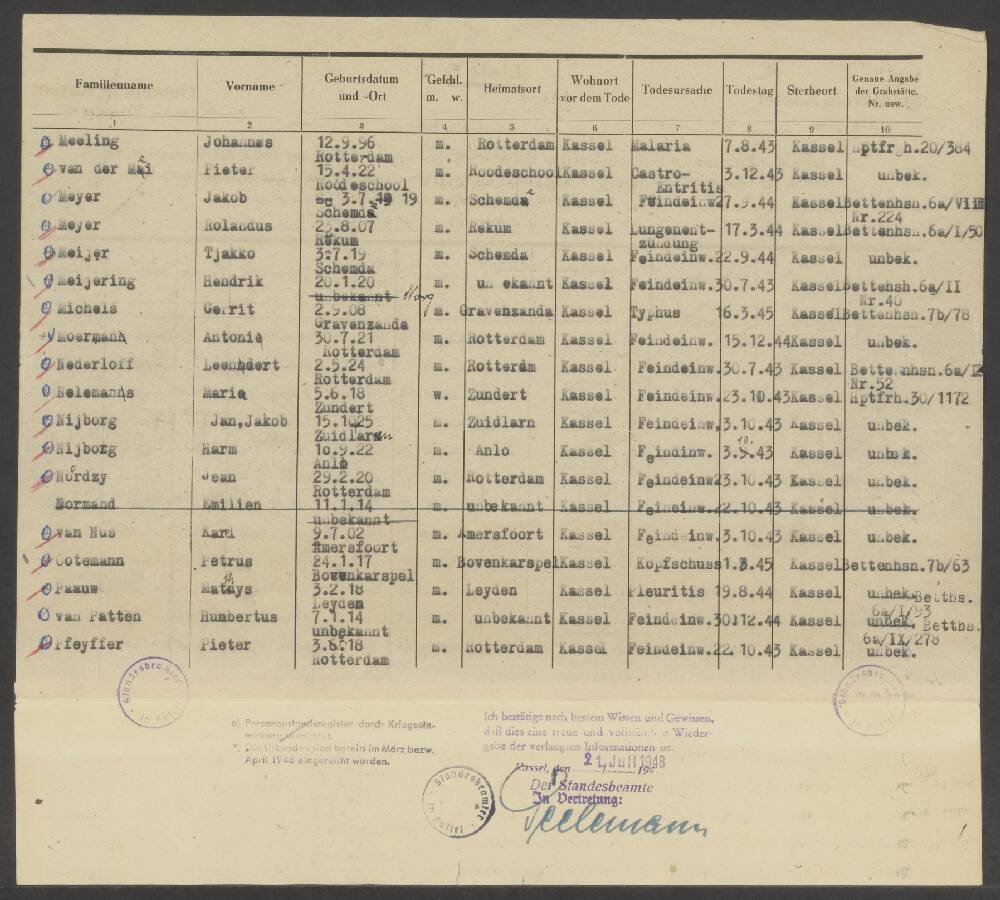 Familienname Vorname Geburtsdatum und -Ort Geschl. m. w. Heimatsort Wohnort vor dem Tode Todesursache Todestag Sterbeort Genaue Angabe der Grabstätte. Nr. usw.
1 2 3 4 5 6 7 8 9 10
Meeling Johannes 12.9.96 m. Rotterdam Kassel Malaria 7.8.43 Kassel Hptfrh.20/384
Rotterdam
van der Mei Pieter 15.4.22 m. Roodeschool Kassel Castro- 3.12.43 Kassel unbek.
Roodeschool Entritis
Meyer Jakob 3.7.19 19 m. Schemda Kassel Feindeinw. 27.9.44 Kassel Bettenhsn.6a/VIII
Schemda Nr.224
Meyer Rolandus 23.8.07 m. Rekum Kassel Lungenent- 17.3.44 Kassel Bettenhsn.6a/I/50
Rekum zündung
Meijer Tjakko 3.7.19 m. Schemda Kassel Feindeinw. 22.9.44 Kassel unbek.
Schemda
Meijering Hendrik 20.1.20 m. unbekannt Kassel Feindeinw. 30.7.43 Kassel Bettenhsh.6a/II
unbekannt Nr.40
Michels Gerrit 2.9.08 m. Gravenzanda Kassel Typhus 16.3.45 Kassel Bettenhsn.7b/78
Gravenzanda
Moermann Antonie 30.7.21 m. Rotterdam Kassel Feindeinw. 15.12.44 Kassel unbek.
Rotterdam
Nederloff Leenhdert 2.5.24 m. Rotterdm Kassel Feindeinw. 30.7.43 Kassel Bettenhsn.6a/I
Rotterdam Nr.52
Nelemanns Maria 5.6.18 w. Zundert Kassel Feindeinw. 23.10.43 Kassel Hptfrh.30/1172
Zundert
Nijborg Jan,Jakob 15.1025 m. Zuidlarn Kassel Feindeinw. 3.10.43 Kassel unbek.
Zuidlaren
Nijborg Harm 10.9.22 m. Anlo Kassel Feindinw. 3.10.43 Kassel unbek.
Anlo
Nordzy Jean 29.2.20 m. Rotterdam Kassel Feindeinw 23.10.43 Kassel unbek.
Rotterdam
Normand Emilien 11.1.14 m. unbekannt Kassel Feineinw. 22.10.43 Kassel unbek.
unbekannt
van Nus Karel 9.7.02 m. Amersfoort Kassel Feindeinw. 3.10.43 Kassel unbek.
Amersfoort
Ootemann Petrus 24.1.17 m. Bovenkarspel Kassel Kopfschuss 1.3.45 Kassel Bettenhsn.7b/63
Bovenkarspel
Paauw Mathys 3.2.18 m. Leyden Kassel Pleuritis 19.8.44 Kassel unbek. Betths.
Leyden 6a/I/93
van Patten Humbertus 7.1.14 m. unbekannt Kassel Feindeinw. 30.12.44 Kassel unbek. Betths.
unbekannt 6a/IX/278
Pfeyffer Pieter 3.6.18 m. Rotterdam Kassel Feindeinw. 22.10.43 Kassel unbek.
Rotterdam
o) Personenstandsregister durch Kriegsein-
wirkung vernichtet.
Die Urkunden sind bereits im März bezw.
April 1946 eingereicht worden.
Ich bestätige nach bestem Wissen und Gewissen,
daß dies eine treue und vollständige Wieder-
gabe der verlangten Informationen ist.
Kassel, den 21. Juli 1948
Der Standesbeamte
In Vertretung:
Standesbeamter